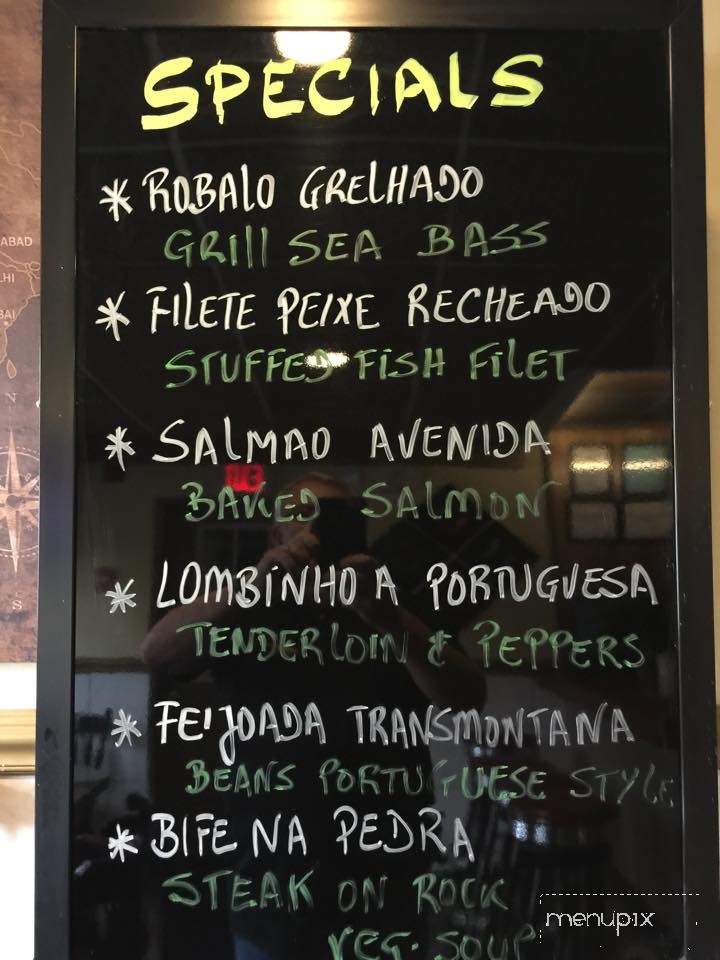 SPECIALS
* ROBALO GRELHADO
GRILL SEA BASS
* FILETE PEIXE RECHEADO
STUFFED FISH FILET
* SALMAO AVENIDA
BAKED SALMON
* LOMBINHO A PORTUGUESA
TENDERLOIN & PEPPERS
* FEIJOADA TRANSMONTANA
BEANS PORTUGUESE STYLE
* BIFE NA PEDRA
STEAK ON ROCK
VEG. SOUP
menupix
ABAD
LHI
BAI
N
S